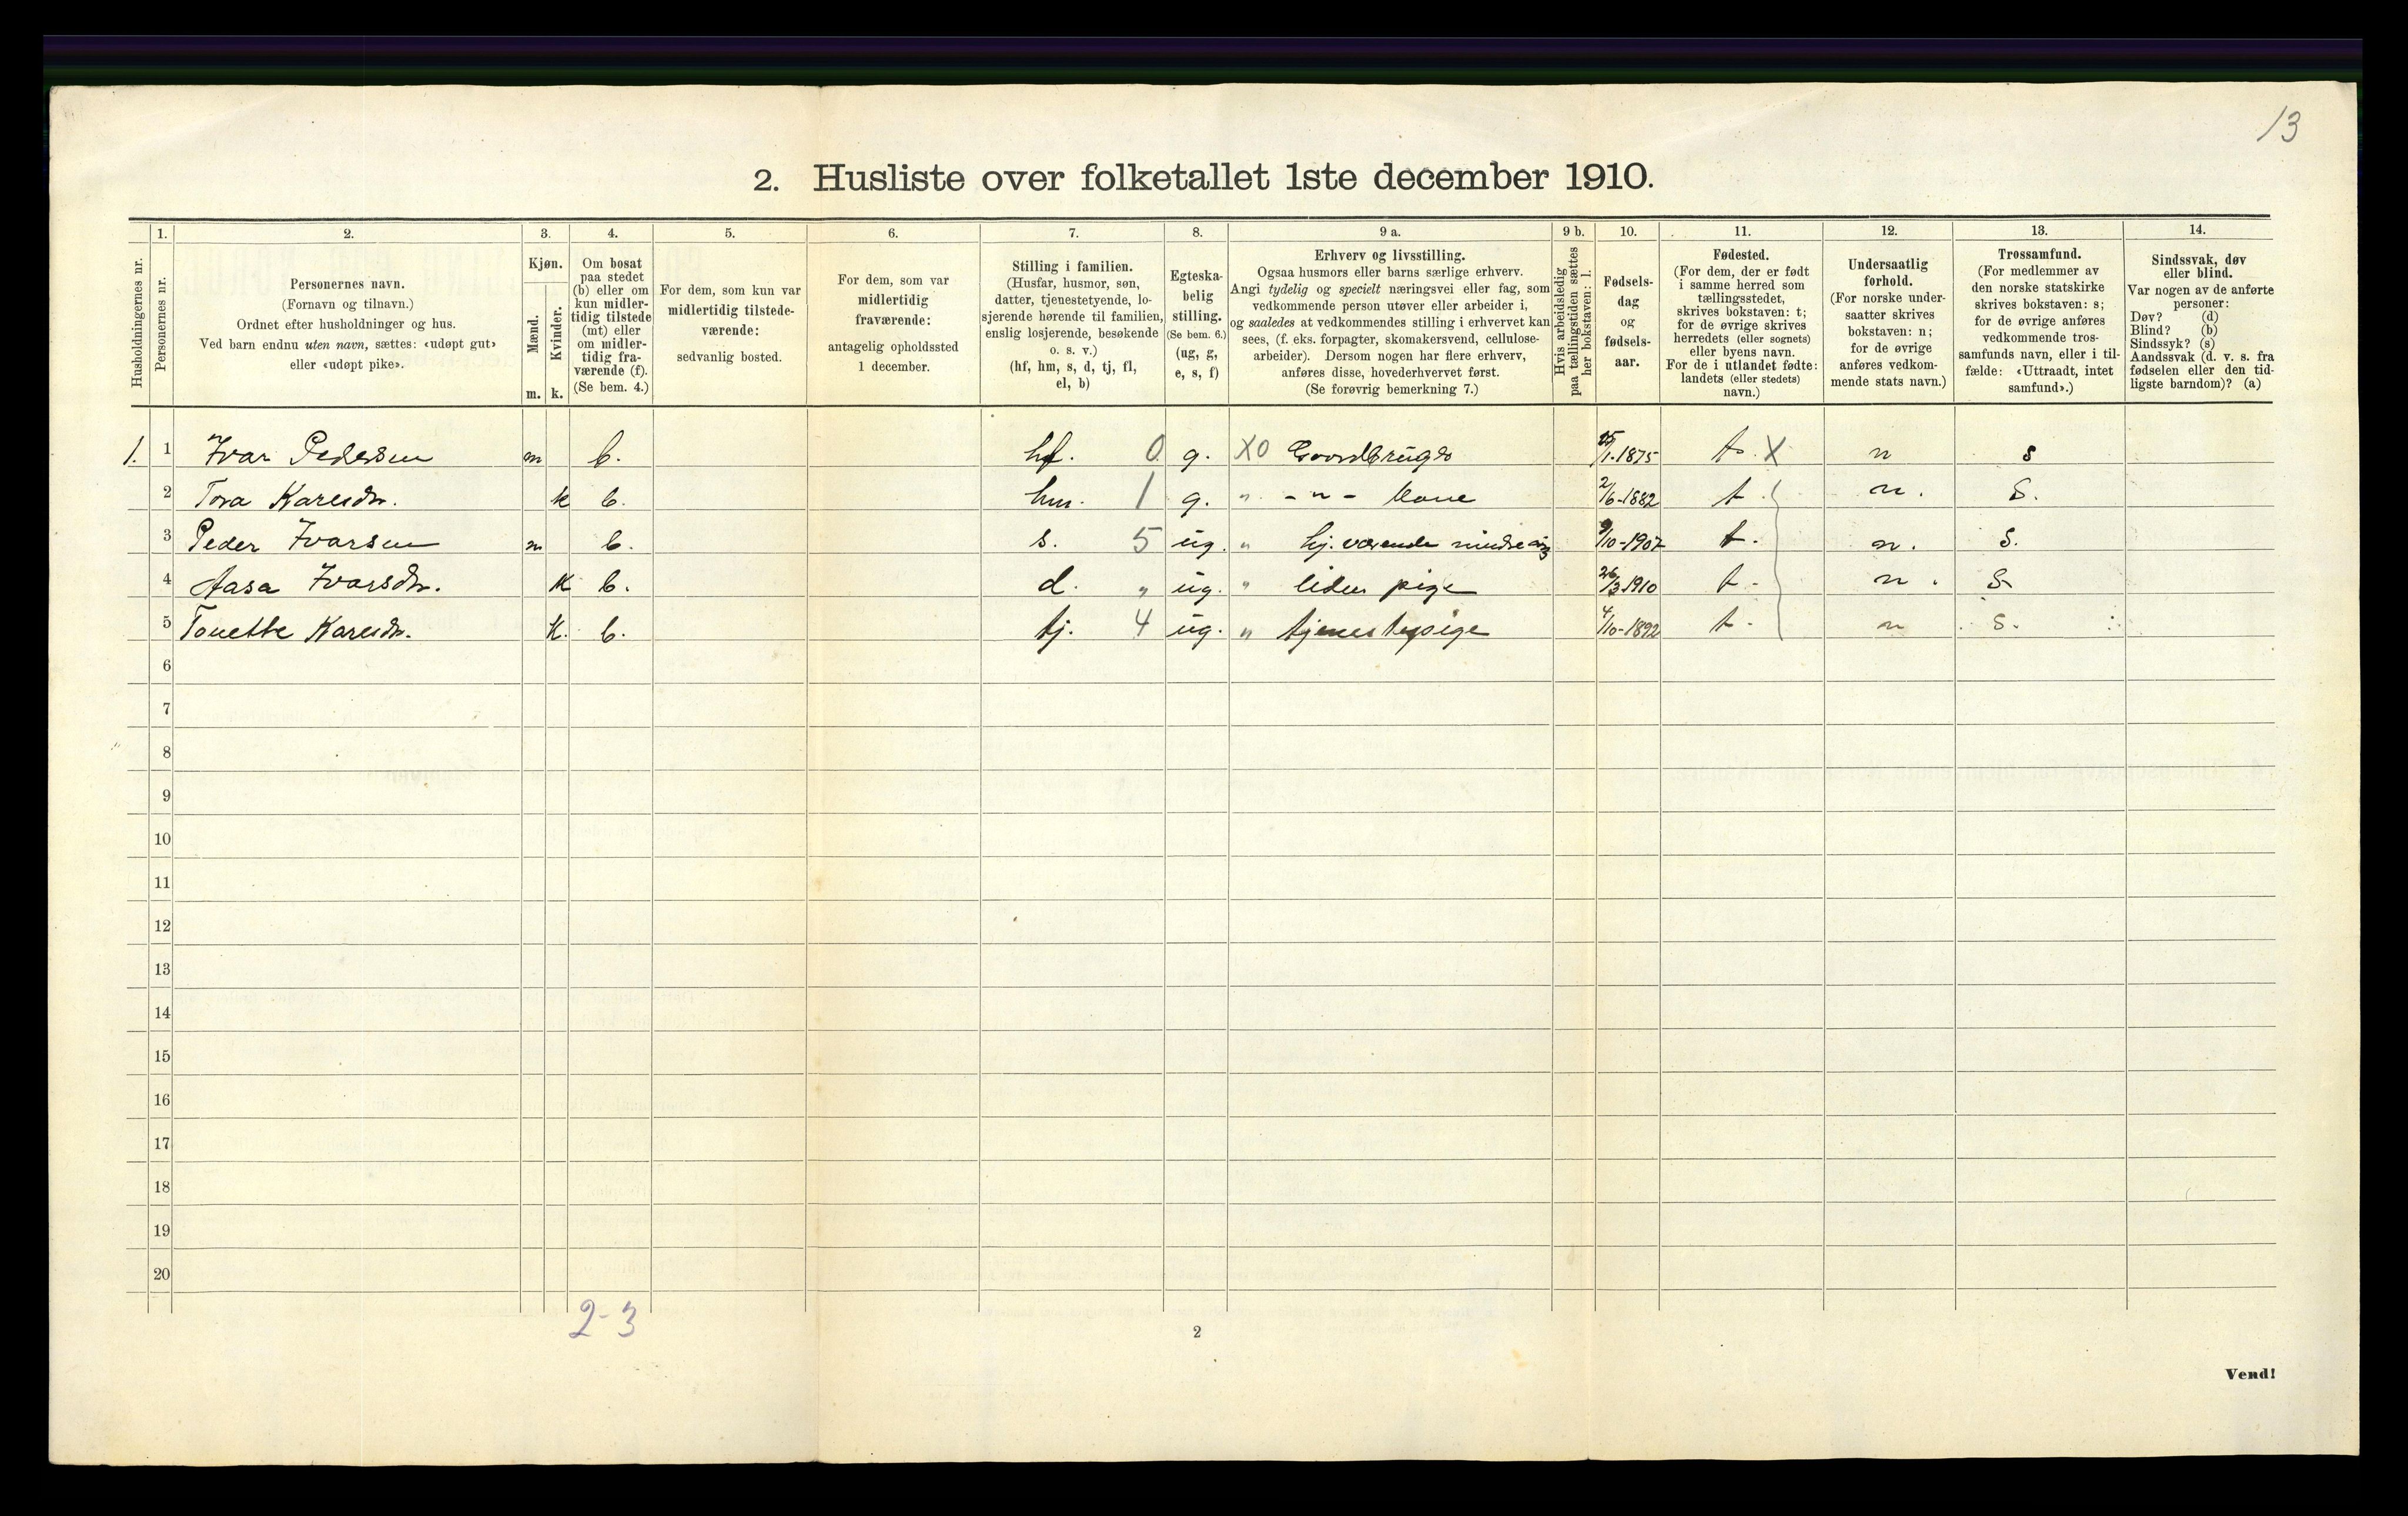 13
2. Husliste over folketallet 1ste december 1910.
1. 2. 3. 4. 5. 6. 7. 8. 9 a. 9 b. 10. 11. 12. 13. 14.
Husholdningernes nr.
Personernes nr.
Personernes navn.
(Fornavn og tilnavn.)
Ordnet efter husholdninger og hus.
Ved barn endnu uten navn, sættes: «udøpt gut»
eller «udøpt pike».
Kjøn.
Mænd.
Kvinder.
m. k.
Om bosat
paa stedet
(b) eller om
kun midler-
tidig tilstede
(mt) eller
om midler-
tidig fra-
værende (f).
(Se bem. 4.)
For dem, som kun var
midlertidig tilstede-
værende:
sedvanlig bosted.
For dem, som var
midlertidig
fraværende:
antagelig opholdssted
1 december.
Stilling i familien.
(Husfar, husmor, søn,
datter, tjenestetyende, lo-
sjerende hørende til familien,
enslig losjerende, besøkende
o. s. v.)
(hf, hm, s, d, tj, fl,
el, b)
Egteska-
belig
stilling.
(Se bem. 6.)
(ug, g,
e, s, f)
Erhverv og livsstilling.
Ogsaa husmors eller barns særlige erhverv.
Angi tydelig og specielt næringsvei eller fag, som
vedkommende person utøver eller arbeider i,
og saaledes at vedkommendes stilling i erhvervet kan
sees, (f. eks. forpagter, skomakersvend, cellulose-
arbeider). Dersom nogen har flere erhverv,
anføres disse, hovederhvervet først.
(Se forøvrig bemerkning 7.)
Hvis arbeidsledig
paa tællingstiden sættes
her bokstaven: l.
Fødsels-
dag
og
fødsels-
aar.
Fødested.
(For dem, der er født
i samme herred som
tællingsstedet,
skrives bokstaven: t;
for de øvrige skrives
herredets (eller sognets)
eller byens navn.
For de i utlandet fødte:
landets (eller stedets)
navn.)
Undersaatlig
forhold.
(For norske under-
saatter skrives
bokstaven: n;
for de øvrige
anføres vedkom-
mende stats navn.)
Trossamfund.
(For medlemmer av
den norske statskirke
skrives bokstaven: s;
for de øvrige anføres
vedkommende tros-
samfunds navn, eller i til-
fælde: «Uttraadt, intet
samfund».)
Sindssvak, døv
eller blind.
Var nogen av de anførte
personer:
Døv? (d)
Blind? (b)
Sindssyk? (s)
Aandssvak (d. v. s. fra
fødselen eller den tid-
ligste barndom)? (a)
1. 1 Ivar Pedersen m b. hf. 0 g. X0 Goordbruger 25/1-1875 t. X n s
2 Tora Karesdr. k b. hm. 1 g. " - " - Kone 2/6-1882 t. n. S.
3 Peder Ivarsen m b. s. 5 ug. " hj. værende 9/10-1907 t. n. S.
4 Aasa Ivarsdr. k b. d. " ug. " liden pige 26/3-1910 t. n. S.
5 Tonette Karesdr. k. b. tj. 4 ug. " tjenestepige 4/10-1892 t. n S.
6
7
8
9
10
11
12
13
14
15
16
17
18
19
20
2-3
2
Vend!